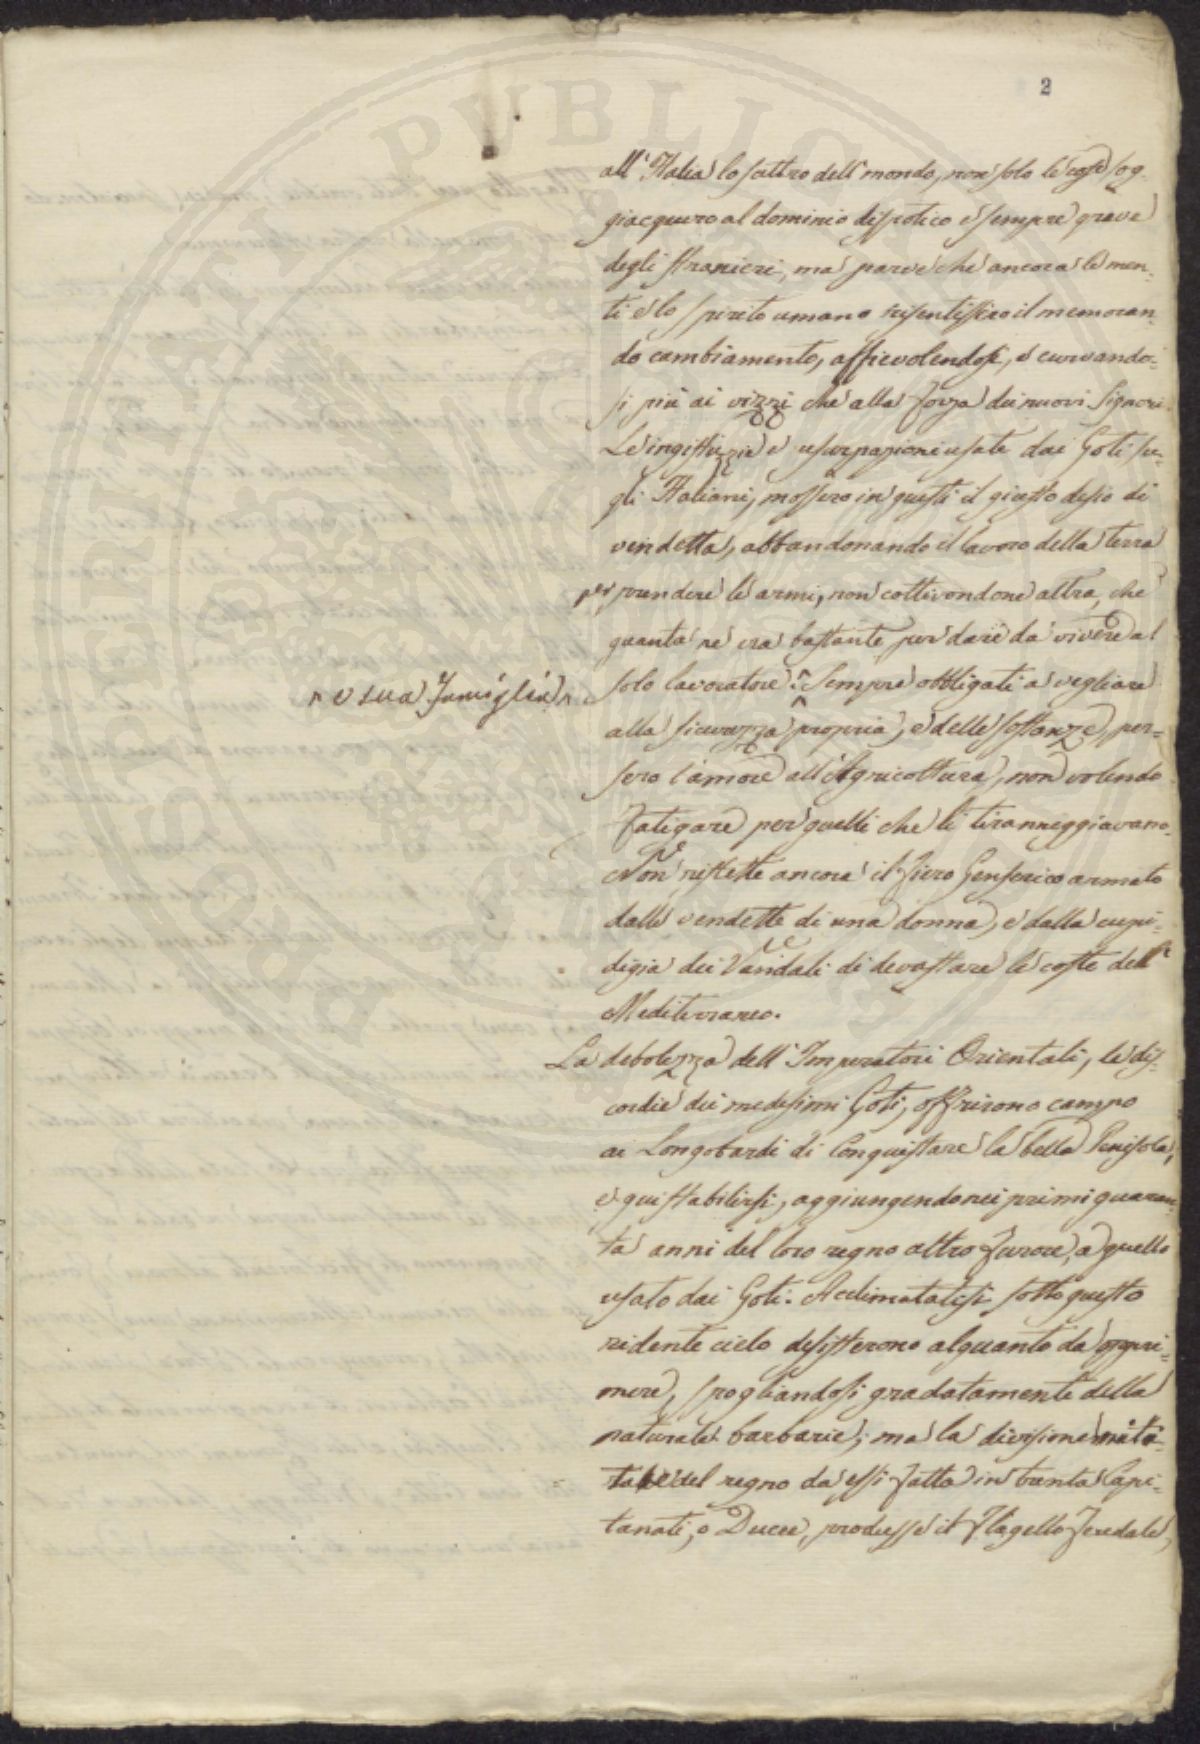 2
all' Italia lo scettro dell' mondo, non solo le cose sog-
giacquero al dominio dispotico e sempre grave
degli stranieri, ma parve che ancora le men-
ti e lo spirito umano risentissero il memoran-
do cambiamento, affievolendosi, e curvando-
si più ai vizzi che alla forza dei nuovi Signori.
Le ingistizie e usurpazioni usate dai Goti su-
gli Italiani, mossero in questi il giusto desio di
vendetta, abbandonando il lavoro della terra
per prendere le armi, non coltivandone altra, che
quanta ne era bastante per dare da vivere al
solo lavoratore ^ Sempre obbligati a vegliare
^ e sua famiglia ^
alla sicurezza propria, e delle sostanze, per-
sero l'amore all'Agricoltura, non volendo
fatigare per quelli che li tiranneggiavano.
Non ristette ancora il fiero Genserico armato
dalle vendette di una donna, e dalla cupi-
digia dei Vandali di devastare le coste dell
Mediterraneo.
La debolezza dell' Imperatori Orientali, le dis-
cordie dei medesimi Goti, offrirono campo
ai Longobardi di Conquistare la bella Penisola,
e qui stabilirsi, aggiungendo nei primi quaran-
ta anni del loro regno altro furore, a quello
usato dai Goti. Acclimatatisi sotto questo
ridente cielo desisterono alquanto da oppri-
mere, spogliandosi gradatamente della
naturale barbarie; ma la divisione
del regno da essi fatta in trenta Capi-
tanati, o Ducee, produsse il flagello feudale,